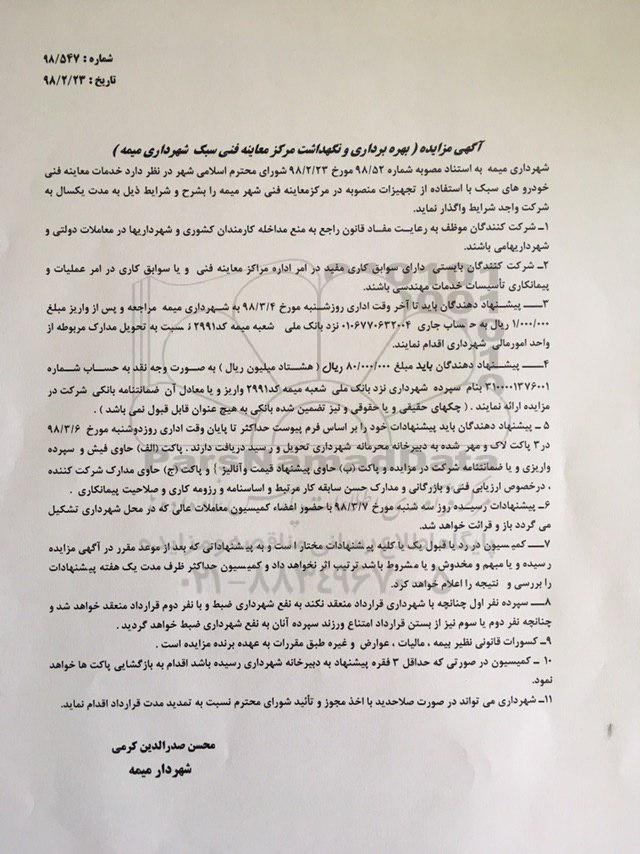 شماره : ۹۸/۵۴۷
تاریخ : ۹۸/۲/۲۳
آگهی مزایده ( بهره برداری و نگهداشت مرکز معاینه فنی سبک شهرداری میمه )
شهرداری میمه به استناد مصوبه شماره ۹۸/۵۲ مورخ ۹۸/۲/۲۳ شورای محترم اسلامی شهر در نظر دارد خدمات معاینه فنی
خودرو های سبک با استفاده از تجهیزات منصوبه در مرکزمعاینه فنی شهر میمه را بشرح و شرایط ذیل به مدت یکسال به
شرکت واجد شرایط واگذار نماید.
۱ــ شرکت کنندگان موظف به رعایت مفاد قانون راجع به منع مداخله کارمندان کشوری و شهرداریها در معاملات دولتی و
شهرداریهامی باشند.
۲ــ شرکت کنندگان بایستی دارای سوابق کاری مفید در امر اداره مراکز معاینه فنی و یا سوابق کاری در امر عملیات و
پیمانکاری تأسیسات خدمات مهندسی باشند.
۳ــ پیشنهاد دهندگان باید تا آخر وقت اداری روزشنبه مورخ ۹۸/۳/۴ به شهرداری میمه مراجعه و پس از واریز مبلغ
۱/۰۰۰/۰۰۰ ریال به حساب جاری ۰۱۰۶۷۷۰۶۳۲۰۰۴ نزد بانک ملی شعبه میمه کد۲۹۹۱ نسبت به تحویل مدارک مربوطه از
واحد امورمالی شهرداری اقدام نمایند.
۴ــ پیشنهاد دهندگان باید مبلغ ۸۰/۰۰۰/۰۰۰ ریال ( هشتاد میلیون ریال ) به صورت وجه نقد به حساب شماره
۳۱۰۰۰۰۱۳۷۶۰۰۱ بنام سپرده شهرداری نزد بانک ملی شعبه میمه کد۲۹۹۱ واریز و یا معادل آن ضمانتنامه بانکی شرکت در
مزایده ارائه نمایند . ( چکهای حقیقی و یا حقوقی و نیز تضمین شده بانکی به هیچ عنوان قابل قبول نمی باشد ) .
۵ ــ پیشنهاد دهندگان باید پیشنهادات خود را بر اساس فرم پیوست حداکثر تا پایان وقت اداری روزدوشنبه مورخ ۹۸/۳/۶
در۳ پاکت لاک و مهر شده به دبیرخانه محرمانه شهرداری تحویل و رسید دریافت دارند . پاکت (الف) حاوی فیش و سپرده
واریزی و یا ضمانتنامه شرکت در مزایده و پاکت (ب) حاوی پیشنهاد قیمت وآنالیز } و پاکت (ج) حاوی مدارک شرکت کننده
، درخصوص ارزیابی فنی و بازرگانی و مدارک حسن سابقه کار مرتبط و اساسنامه و رزومه کاری و صلاحیت پیمانکاری .
۶ــ پیشنهادات رسیده روز سه شنبه مورخ ۹۸/۳/۷ با حضور اعضاء کمیسیون معاملات عالی که در محل شهرداری تشکیل
می گردد باز و قرائت خواهد شد.
۷ــ کمیسیون در رد یا قبول یک یا کلیه پیشنهادات مختار است و به پیشنهاداتی که بعد از موعد مقرر در آگهی مزایده
رسیده و یا مبهم و مخدوش و یا مشروط باشد ترتیب اثر نخواهد داد و کمیسیون حداکثر ظرف مدت یک هفته پیشنهادات
را بررسی و نتیجه را اعلام خواهد کرد.
۸ــ سپرده نفر اول چنانچه با شهرداری قرارداد منعقد نکند به نفع شهرداری ضبط و با نفر دوم قرارداد منعقد خواهد شد و
چنانچه نفر دوم یا سوم نیز از بستن قرارداد امتناع ورزند سپرده آنان به نفع شهرداری ضبط خواهد گردید .
۹ــ کسورات قانونی نظیر بیمه ، مالیات ، عوارض و غیره طبق مقررات به عهده برنده مزایده است .
۱۰ ــ کمیسیون در صورتی که حداقل ۳ فقره پیشنهاد به دبیرخانه شهرداری رسیده باشد اقدام به بازگشایی پاکت ها خواهد
نمود.
۱۱ــ شهرداری می تواند در صورت صلاحدید با اخذ مجوز و تأئید شورای محترم نسبت به تمدید مدت قرارداد اقدام نماید.
محسن صدرالدین کرمی
شهردار میمه
ParsNamadData
۰۲۱-۸۸۳۴۹۶۷۰